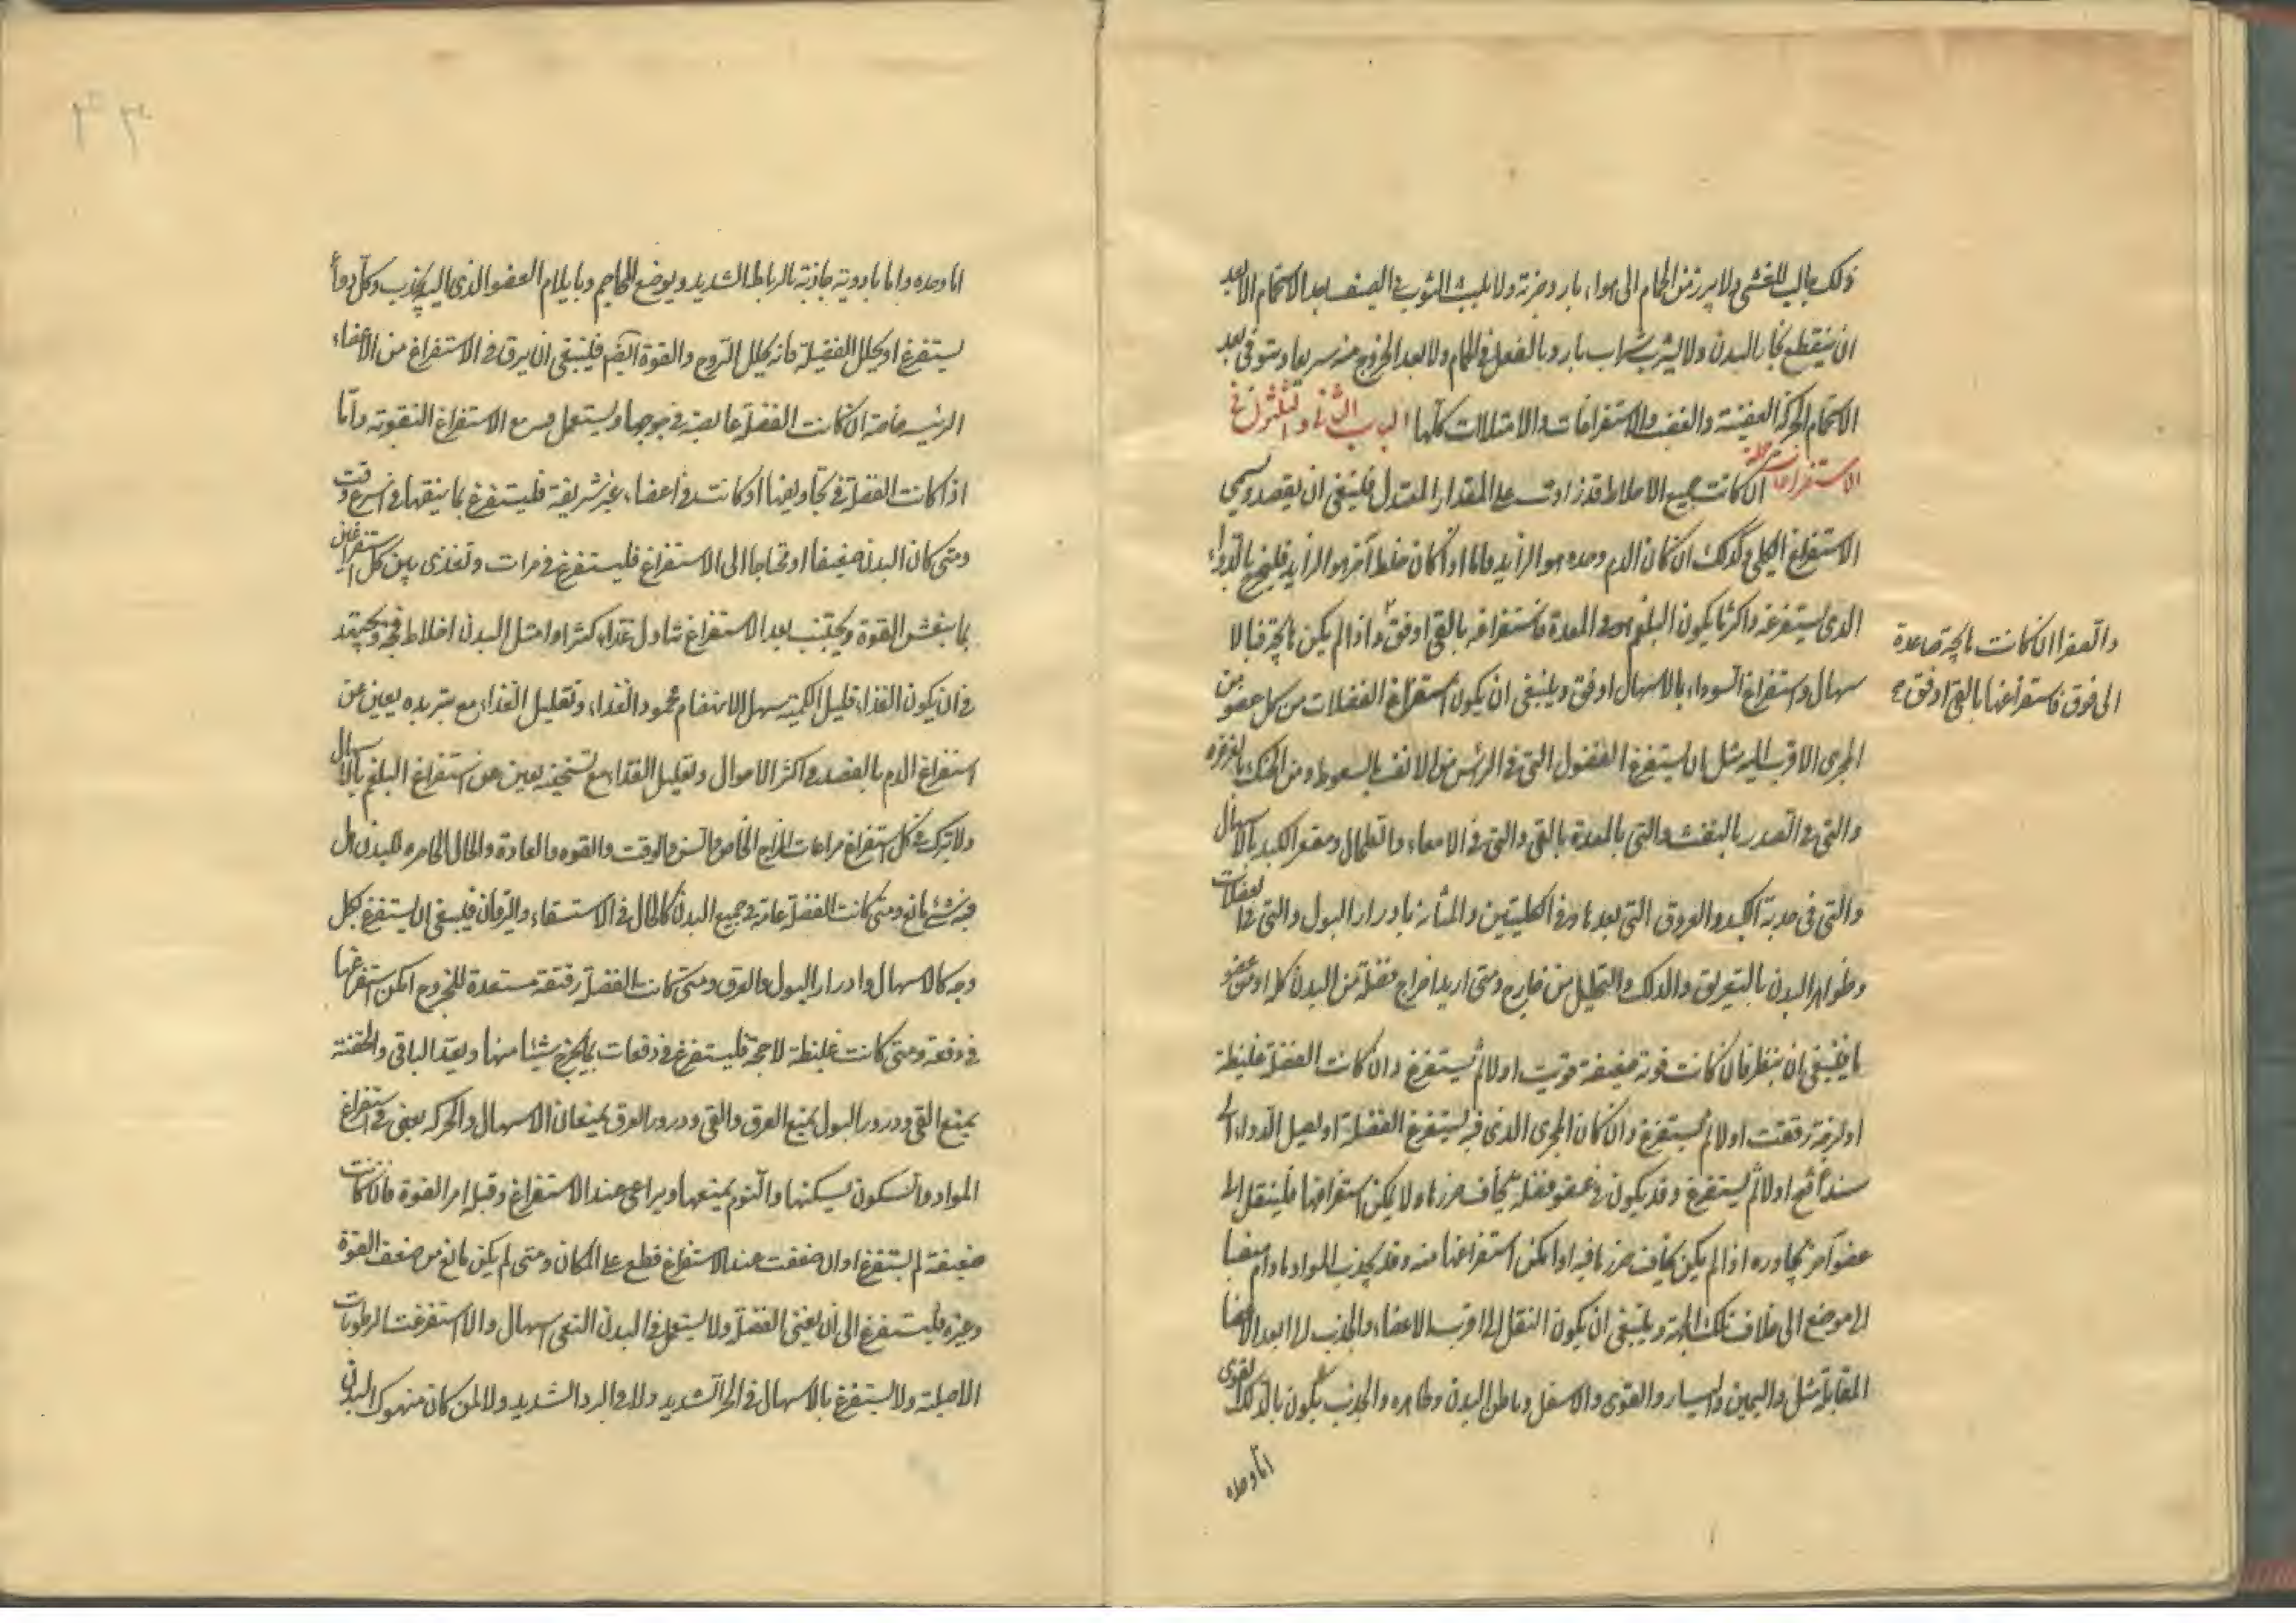 ذلك جالب للغشى ولا يبرز من الحمام الى هواء بارد وضربة ولا يلبث الثوب فى الصيف بعد الاستحمام الا بعد
ان ينقطع بخار البدن ولا يشرب شراب بارد بالفعل فى الحمام ولا بعد الخروج منه سريعا ويتوقى بعد
الاستحمام الحركة العنيفة والغضب والاستفراغات والامتلاآت كلها الباب الثانى والثلثون فى
الاستفراغات جملة ان كانت جميع الاخلاط قد زادت على المقدار المعتدل فينبغى ان يفصد ويسمى
الاستفراغ الكلى وكذلك ان كان الدم وحده هو الزايد فاما اذا كان خلط آخر هو الزايد فليخرج بالدواء
الذى يستفرغه واكثر ما يكون البلغم هو فى المعدة فاستفراغه بالقى اوفق واذا لم يكن هايجة فبالا
سهال واستفراغ السوداء بالاسهال اوفق وينبغى ان يكون استفراغ الفضلات من كل عضو من
المجرى الاقرب اليه مثل ان يستفرغ الفضول التى فى الرئس من الانف بالسعوط ومن الحنك بالغرغره
والتى فى الصدر بالنفث والتى بالمعدة بالقى والتى فى الامعاء والطحال ومقعر الكبد بالاسهال
والتى فى حدبة الكبد والعروق التى بعدها وفى الكليتين والمثانة بادرار البول والتى فى العضلات
وظواهر البدن بالتعريق والدلك والتحليل من خارج ومتى اريد اخراج فضلة من البدن كله او من عضو
ما فينبغى ان ينظر فان كانت قوته ضعيفة قويت اولا ثم يستفرغ وان كانت الفضلة غليظة
او لزجة رققت اولا ثم يستفرغ وان كان المجرى الذى فيه يستفرغ الفضلة او يصل الدواء اليه
سدد فتح اولا ثم يستفرغ وقد يكون فى عضو فضلة يخاف ضررها ولا يمكن استفراغها فلينقل الى
عضو آخر يجاوره اذا لم يكن يخاف ضررها فيه او امكن استفراغها منه وقد يجذب المواد ما دام منصبا
الى موضع الى خلاف تلك الجهة وينبغى ان يكون النقل الى اقرب الاعضاء والجذب الى ابعد الاعضا
المقابلة مثل واليمين واليسار والفوق والاسفل وباطن البدن وظاهره والجذب يكون بالدلك القوى
اما وحده
والصفرا ان كانت هايجة صاعدة
الى فوق فاستفراغها بالقى اوفق
اما وحده واما بادوية جاذبة بالرباط الشديد ويوضع المحاجم وبايلام العضو الذى اليه يجذب وكل دواء
يستفرغ او يحلل الفضلة فانه يحلل الروح والقوة ايضا فينبغى ان يرفق فى الاستفراغ من الاعضاء
الرئيسه خاصة ان كانت الفضلة غايصة فى جوهرها ويستعمل مع الاستفراغ التقوية واما
اذا كانت الفضلة فى تجاويفها او كانت فى اعضاء غير شريفة فليستفرغ بما ينقيها فى اسرع وقت
ومتى كان البدن ضعيفا او محتاجا الى الاستفراغ فليستفرغ فى مرات وتغذى بين كل استفراغين
بما ينعش القوة ويجتنب بعد الاستفراغ تناول غذاء كثير او امتلى البدن اخلاط فجة ويجتهد
فى ان يكون الغذاء قليل الكمية سهل الانهضام محمود الغذاء وتقليل الغذاء مع تبريده يعين عن
استفراغ الدم بالفصد فى اكثر الاحوال وتقليل الغذاء مع تسخينه يعين عن استفراغ البلغم بالاسهال
ولا يترك فى كل استفراغ مراعات المزاج الخاص والسن والوقت والقوة والعادة والحال الحاضره للبدن هل
فيه شئ مانع ومتى كانت الفضلة عامة فى جميع البدن كالحال فى الاستسقاء واليرقان فينبغى ان يستفرغ بكل
وجه كالاسهال وادرار البول والعرق ومتى كانت الفضلة رقيقة مستعدة للخروج امكن استفراغها
فى دفعة ومتى كانت غليظة لاحجة فليستفرغ فى دفعات بما يخرج شيئا منها ويعد الباقى والحقنة
يمنع القى ودرور البول يمنع العرق والقى ودرور العرق يمنعان الاسهال والحركه يعين فى استفراغ
المواد والسكون يسكنها والنوم يمنعها ويراعى عند الاستفراغ وقبله امر القوة فان كانت
ضعيفة لم يستفرغ او ان ضعفت عند الاستفراغ قطع على المكان ومتى لم يكن مانع من ضعف القوة
وغيره فليستفرغ الى ان يفنى الفضلة ولا يستعمل فى البدن النقى اسهال والا استفرغت الرطوبات
الاصلية ولا يستفرغ بالاسهال فى الحر الشديد ولا فى البرد الشديد ولا لمن كان منهوك البدن